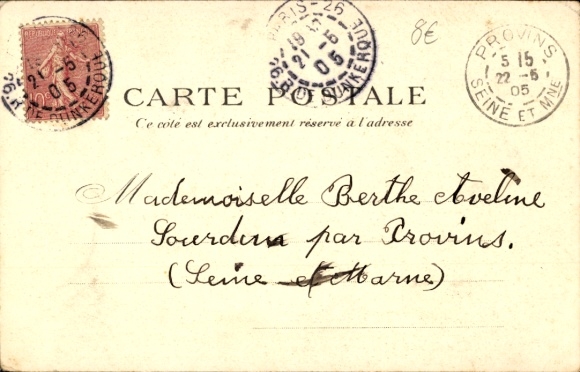 PARIS-26
19
21-5
05
26.R. DE DUNKERQUE
8€
PROVINS
5 15
22-5
05
SEINE ET MNE
CARTE POSTALE
Ce côté est exclusivement réservé à l'adresse
Mademoiselle Berthe Aveline
Sourdun par Provins.
(Seine et Marne)